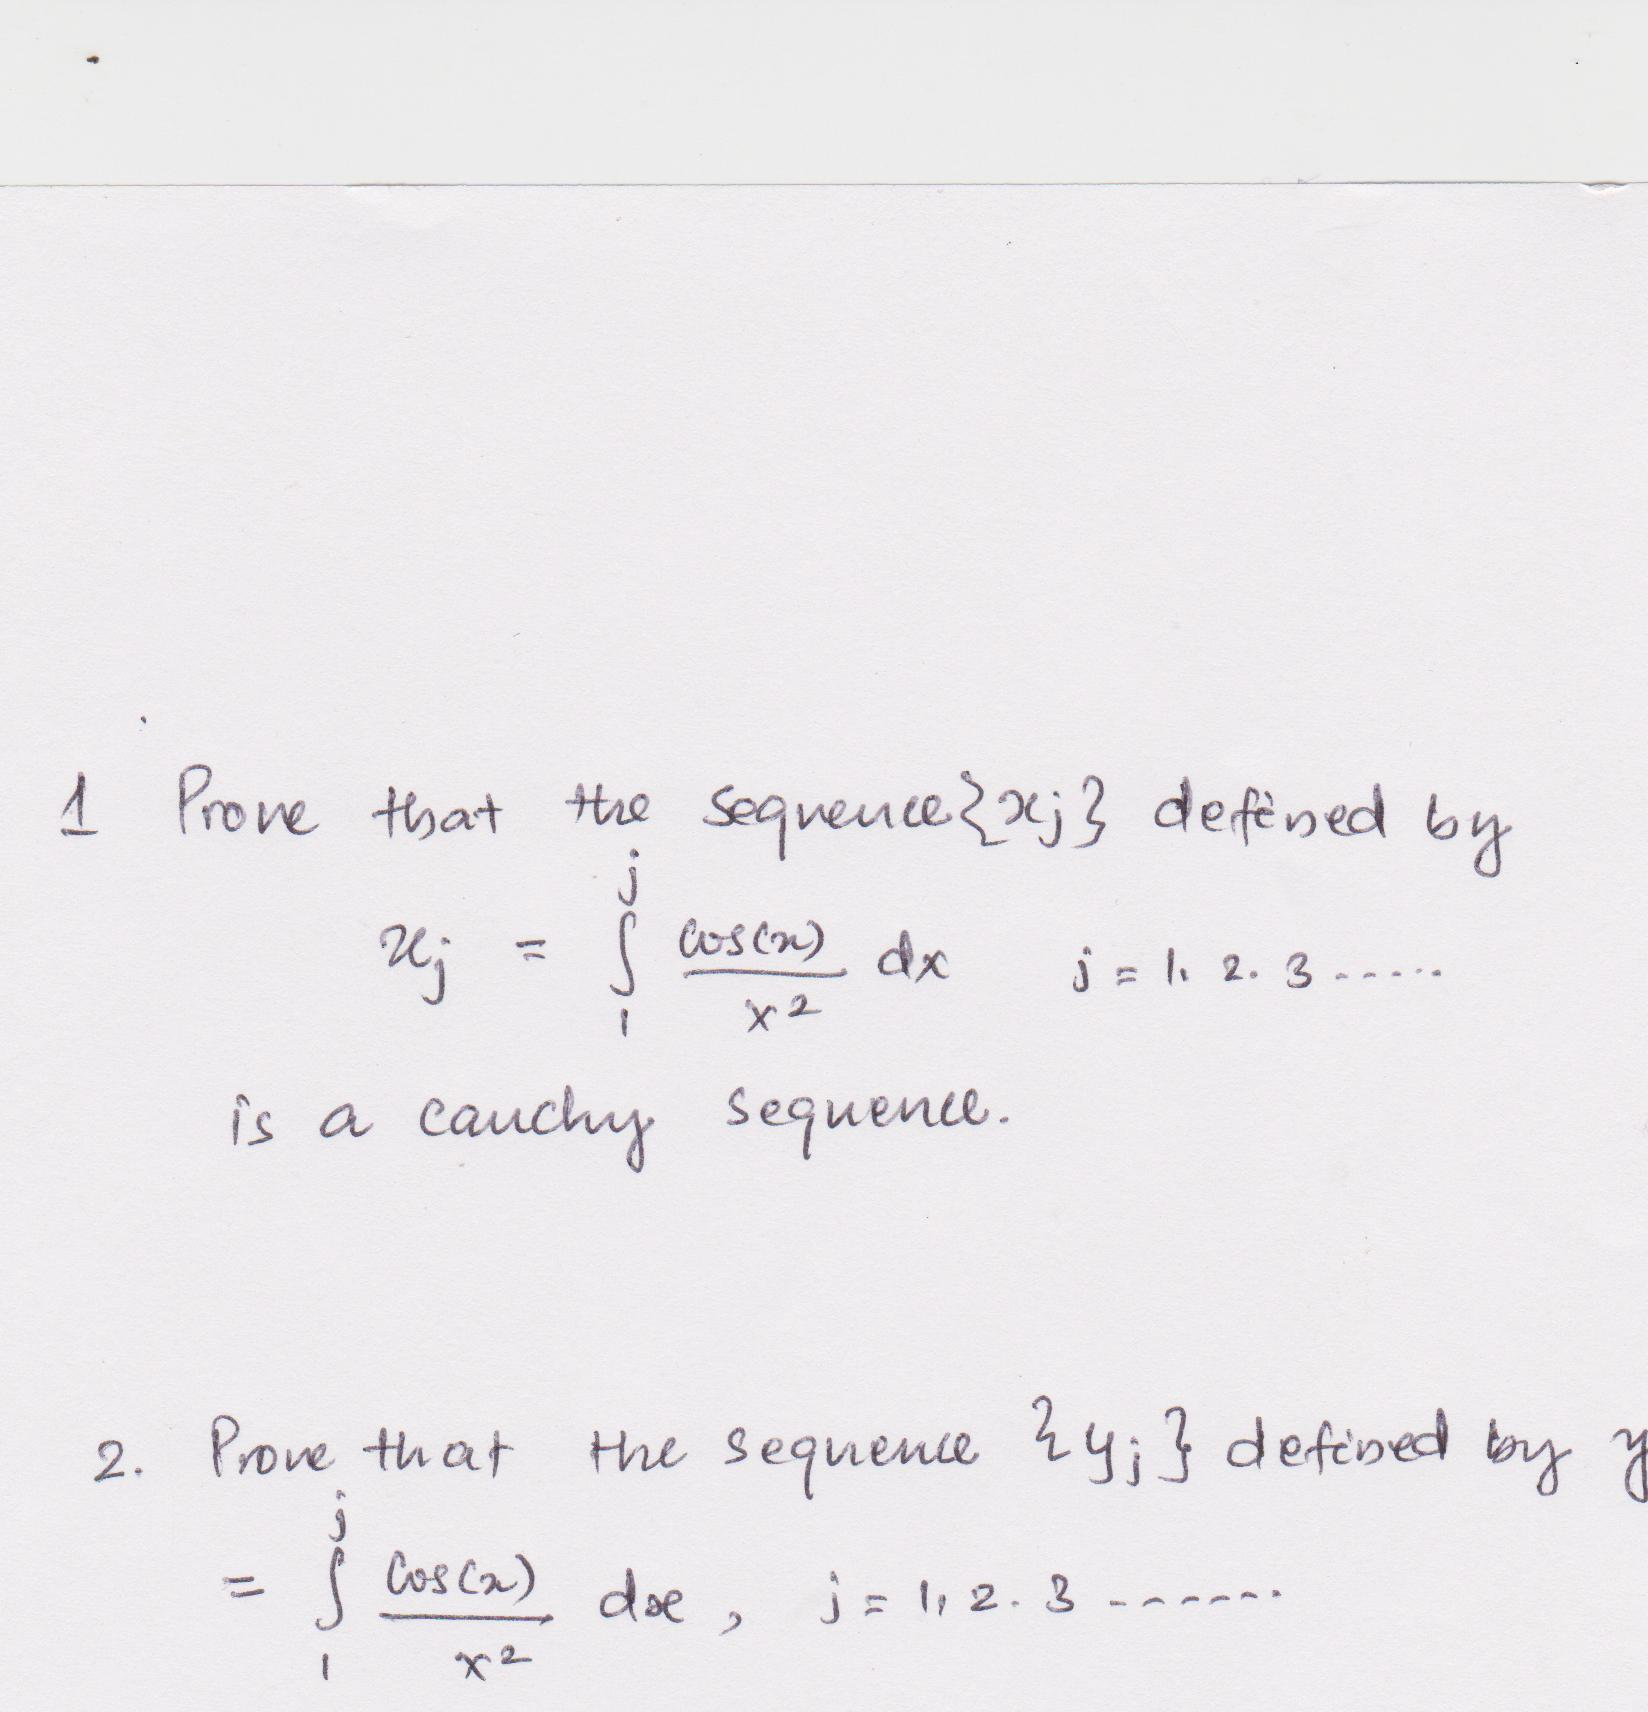 1 Prove that the sequence {xj} defined by
xj = ∫₁ʲ cos(x)/x² dx j = 1, 2. 3 ......
is a cauchy sequence.
2. Prove that the sequence {yj} defined by y
= ∫₁ʲ cos(x)/x² dx, j = 1, 2. 3 .......